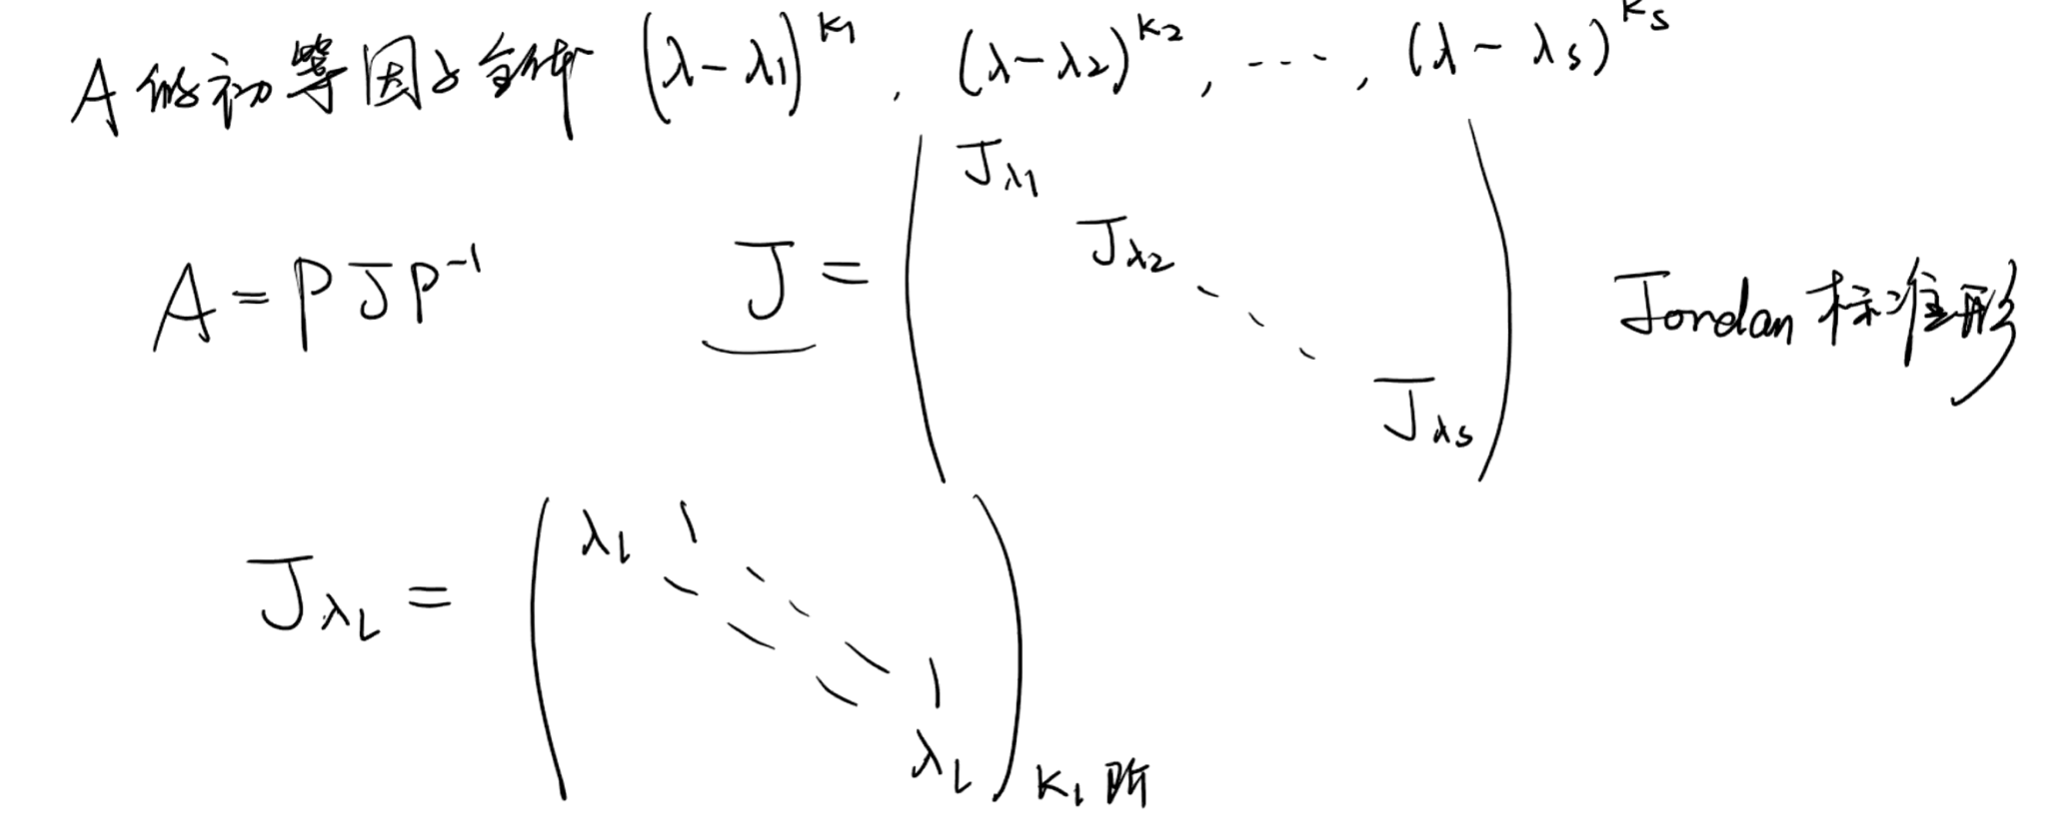 A的初等因子全体 (λ-λ₁)^{k₁}, (λ-λ₂)^{k₂}, ⋯, (λ-λₛ)^{kₛ}
A=PJP⁻¹ J= ( J_{λ₁} J_{λ₂} ⋱ J_{λₛ} ) Jordan 标准形
J_{λᵢ} = ( λᵢ 1 ⋱ ⋱ 1 λᵢ ) kᵢ阶